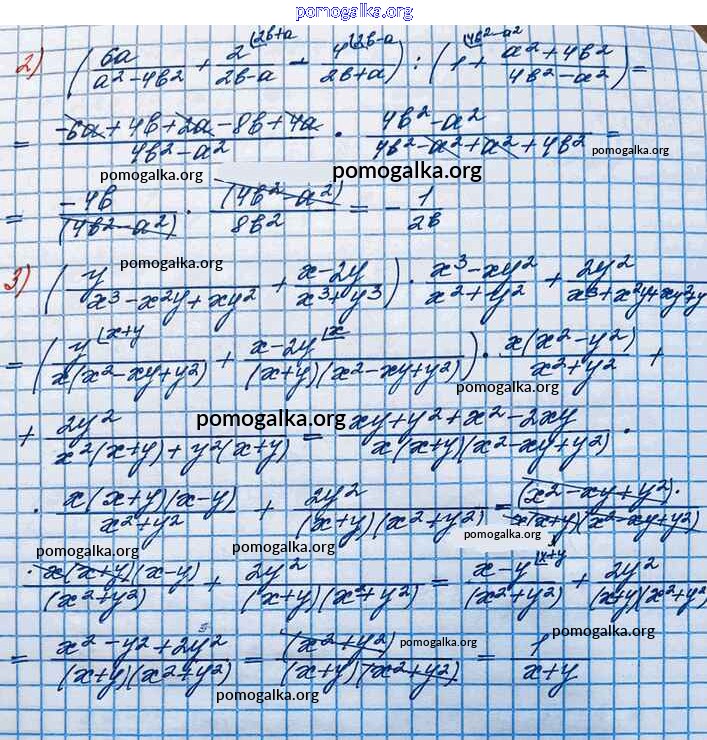 pomogalka.org
2) (6a/(a²-4b²) + 2/(2b-a) - 4/(2b+a)) : (1 + (a²+4b²)/(4b²-a²)) =
= (-6a+4b+2a-8b+4a)/(4b²-a²) · (4b²-a²)/(4b²-a²+a²+4b²) =
pomogalka.org
pomogalka.org
pomogalka.org
= -4b/(4b²-a²) · (4b²-a²)/8b² = - 1/2b
pomogalka.org
3) (y/(x³-x²y+xy²) + (x-2y)/(x³+y³)) · (x³-xy²)/(x²+y²) + 2y²/(x³+x²y+xy²+y
= (y⌊x+y/(x(x²-xy+y²)) + x-2y⌊x/((x+y)(x²-xy+y²))) · x(x²-y²)/(x²+y²) +
pomogalka.org
pomogalka.org
+ 2y²/(x²(x+y)+y²(x+y)) = (xy+y²+x²-2xy)/(x(x+y)(x²-xy+y²)) ·
· x(x+y)(x-y)/(x²+y²) + 2y²/((x+y)(x²+y²)) = (x²-xy+y²)·/(x(x+y)(x²-xy+y²))
pomogalka.org
pomogalka.org
pomogalka.org
· x(x+y)(x-y)/(x²+y²) + 2y²/((x+y)(x²+y²)) = x-y⌊x+y/(x²+y²) + 2y²/((x+y)(x²+y²)
= (x²-y²+2y²)/((x+y)(x²+y²)) = (x²+y²)/((x+y)(x²+y²)) = 1/(x+y)
pomogalka.org
pomogalka.org
pomogalka.org